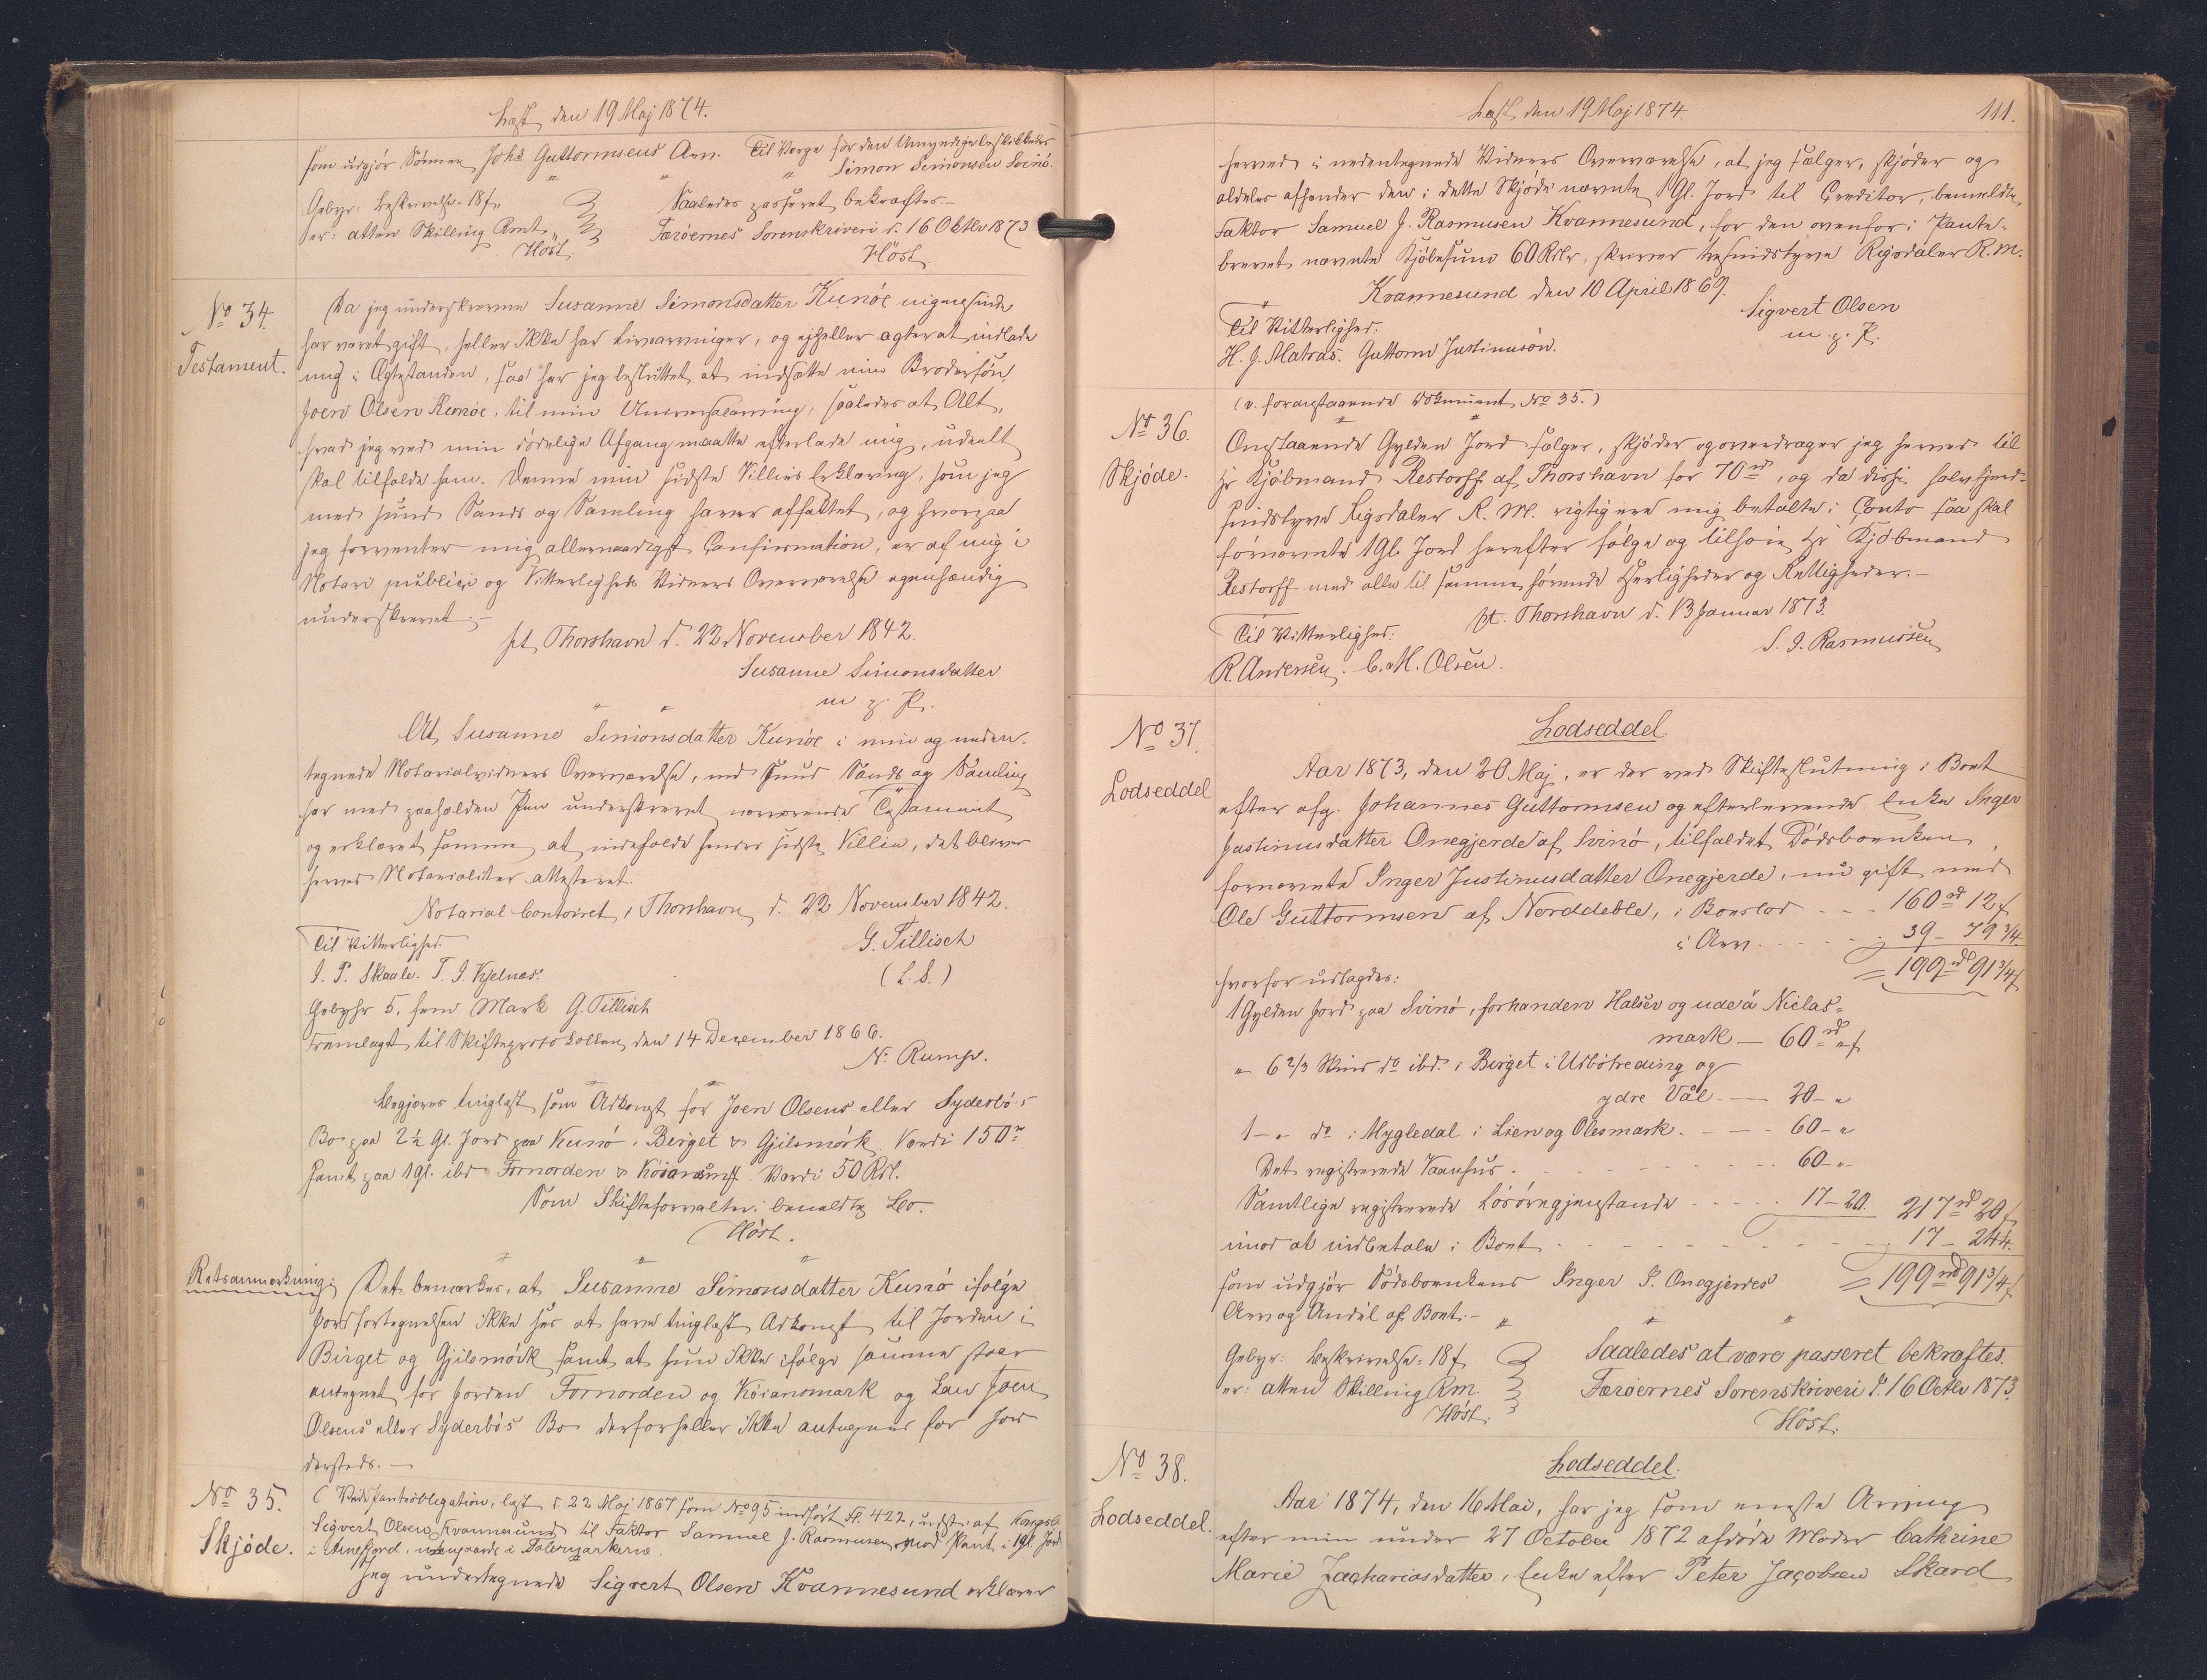 Læst den 19 Maj 1874.
som udgjør Sønnen Johs Guttormsens Arv. Til Værge for den Umyndige beskikkedes
Simon Simonsen Svinö.
Gebyr: Beskrivelse 18 f
er: atten Skilling Rmt.
Höst.
Saaledes passeret bekræftes.-
Færöernes Sorenskriveri d. 16 Oktbr 1873
Höst.
No 34.
Testament.
Da jeg underskrevne Susanne Simonsdatter Kunöe ingensinde
har været gift, heller ikke har Livsarvinger, og ejheller agter at indlade
mig i Ægtestanden, saa har jeg besluttet at indsætte min Brodersön,
Joen Olsen Kunöe, til min Universalarving, saaledes at Alt,
hvad jeg ved min dödelige Afgang maatte efterlade mig, udeelt
skal tilfalde ham. Denne min sidste Villies Erklæring, som jeg
med sund Sands og Samling haver affattet, og hvorpaa
jeg forventer mig allernaadigst Confirmation, er af mig i
Notarii publici og Vitterligheds Vidners Overværelse egenhændig
underskrevet.-
pt. Thorshavn d. 22 November 1842.
Susanne Simonsdatter
m. p. P.
At Susanne Simonsdatter Kunöe i min og neden-
tegnede Notarialvidners Overværelse, med sund Sands og Samling
har med paaholden Pen underskrevet nærværende Testament
og erklæret samme at indeholde hendes sidste Villie, det bliver
herved Notarialiter attesteret.
Notarial Contoiret i Thorshavn, d. 22 November 1842.
Til Vitterlighed.
G. Tillisch
J. P. Skaale. T. J. Kjelnæs.
(L. S.)
Gebyhr 5, fem Mark G. Tillisch
Fremlagt til Skifteprotokollen den 14 Dezember 1866.
N. Rump.
Begjæres tinglæst som Adkomst for Joen Olsens eller Syderbö's
Bo paa 2½ Gl. Jord paa Kunö, Birget & Gjilsmörk, Værdi 150
samt paa 1 Gl. ibd Fornorden & . Værdi 50 Rdl.
Som Skifteforvalter i bemeldte Bo.
Höst.
Retsanmærkning:
Det bemærkes, at Susanne Simonsdatter Kunö ifölge
Jordfortegnelsen ikke sees at have tinglæst Adkomst til Jorden i
Birget og Gjilsmörk samt at hun ikke ifölge samme staar
antegnet for Jorden Fornorden og Köiansmark og kan Joen
Olsens eller Syderbö's Bo derfor heller ikke antegnes for Jord
dersteds.-
No 35.
Skjöde.
(Vide Panteobligation, læst d 22 Maj 1867 som No 95 indfört Fl. 422, udst. af
Sigvert Olsen Kvannesund til Faktor Samuel J. Rasmusen mod Pant i 1 Gl. Jord
i Arnefjord,
Jeg undertegnede Sigvert Olsen Kvannesund erklærer
Læst den 19 Maj 1874.
111.
herved i nedentegnede Vidners Overværelse, at jeg sælger, skjöder og
aldeles afhænder den i dette Skjöde nævnte 1 Gl. Jord til Creditor, bemeldte
Faktor Samuel J. Rasmusen Kvannesund, for den ovenfor i Pante-
brevet nævnte Kjöbesum 60 Rdlr, skriver tresindstyve Rigsdaler R.M.
Kvannesund den 10 April 1869.
Sigvert Olsen
m. p. P.
Til Vitterlighed:
H. J. Matras. Guttorm Justinusön.
(v. foranstaaende Dokument No 35.)
No 36.
Skjöde.
Omstaaende Gylden Jord sælger, skjöder og overdrager jeg herved til
Hr Kjöbmand Restorff af Thorshavn for 70 rd, og da disse halvfjerd-
sindstyve Rigsdaler R. M. rigtig ere mig betalte i Conto saa skal
fornævnte 1 Gl. Jord herefter fölge og tilhöre Hr Kjöbmand
Restorff med alle til samme hörende Herligheder og Rettigheder.-
pt. Thorshavn d. 13 Januar 1873.
Til Vitterlighed:
S. J. Rasmussen
R. Andersen. C. M. Olsen.
No 37.
Lodseddel
Lodseddel.
Aar 1873, den 20 Maj, er der ved Skifteslutning i Boet
efter afg. Johannes Guttormsen og efterlevende Enke Inger
Justinusdatter Onegjerde af Svinö, tilfaldet Dödsboenken
fornævnte Inger Justinusdatter Onegjerde, nu gift med
Ole Guttormsen af Norddeble, i Boeslod - - - 160 rd 12 f
i Arv. - - - - 39 - 79 3/4
= 199 rd 91 3/4 f
hvorfor udlagdes:
1 Gylden Jord paa Svinö, forhanden Halsen og ude á Niclas-
mark — 60 rd " f
" 6 2/3 Skind do ibd. i Birget i Utböhreding og
ydre Väl — 20 - "
1 - " do i Mygledal i Lien og Olesmark. - - - 60 - "
Det registrerede Vaanhus. - - - - 60 - "
Samtlige registrerede Lösöregjenstande - - - 17 - 20. 217 rd 20 f
imod at indbetale i Boet - - - - 17 - 24¼.
som udgjör Dödsboenkens Inger J. Onegjerdes = 199 rd 91 3/4 f
Arv og Andel af Boet.-
Gebyr: Beskrivelse: 18 f
er: atten Skilling Rm.
Höst.
Saaledes at være passeret bekræftes.
Færöernes Sorenskriveri d. 16 Octbr 1873.
Höst.
No 38.
Lodseddel.
Lodseddel.
Aar 1874, den 16 Mai, har jeg som eneste Arving
efter min under 27 October 1872 afdöde Moder Cathrine
Marie Zachariasdatter, Enke efter Peter Jacobsen Skard